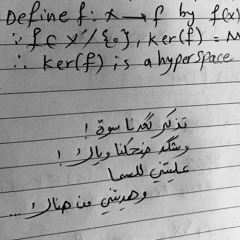 Define f: x → f by f(x)
∵ f ∈ X'/{0}, Ker(f) = M
∴ Ker(f) is a hyperspace
تذكر قعدنا سوة !
وشكد ضحكنا وياك !
عليتني للسما
وهديتني من هناك ...